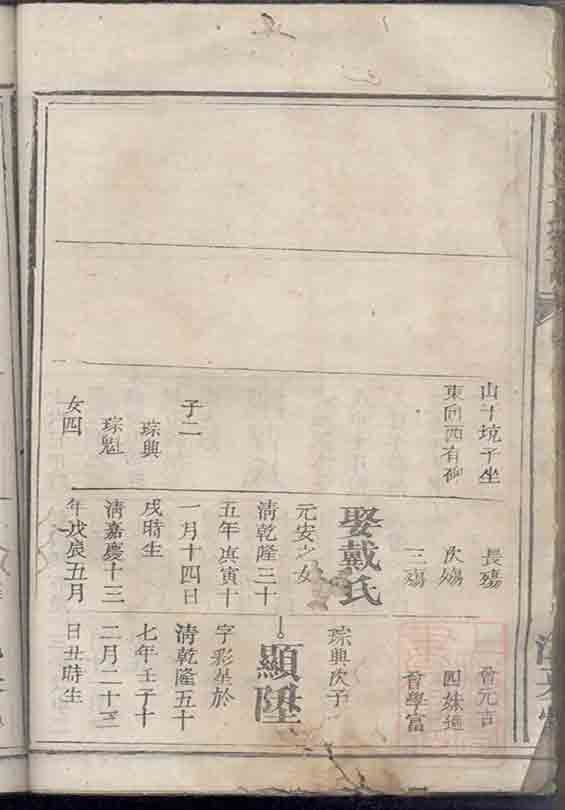 坑子坐
東向西有碑
子二
琮興
琮魁
女四
長殤
次殤
三殤
娶戴氏
元安之女
清乾隆三十
五年庚寅十
一月十四日
戌時生
清嘉慶十三
年戊辰五月
元吉
四妹適
學富
琮興次子
顯陞
字彩星於
清乾隆五十
七年壬子十
二月二十二
日丑時生